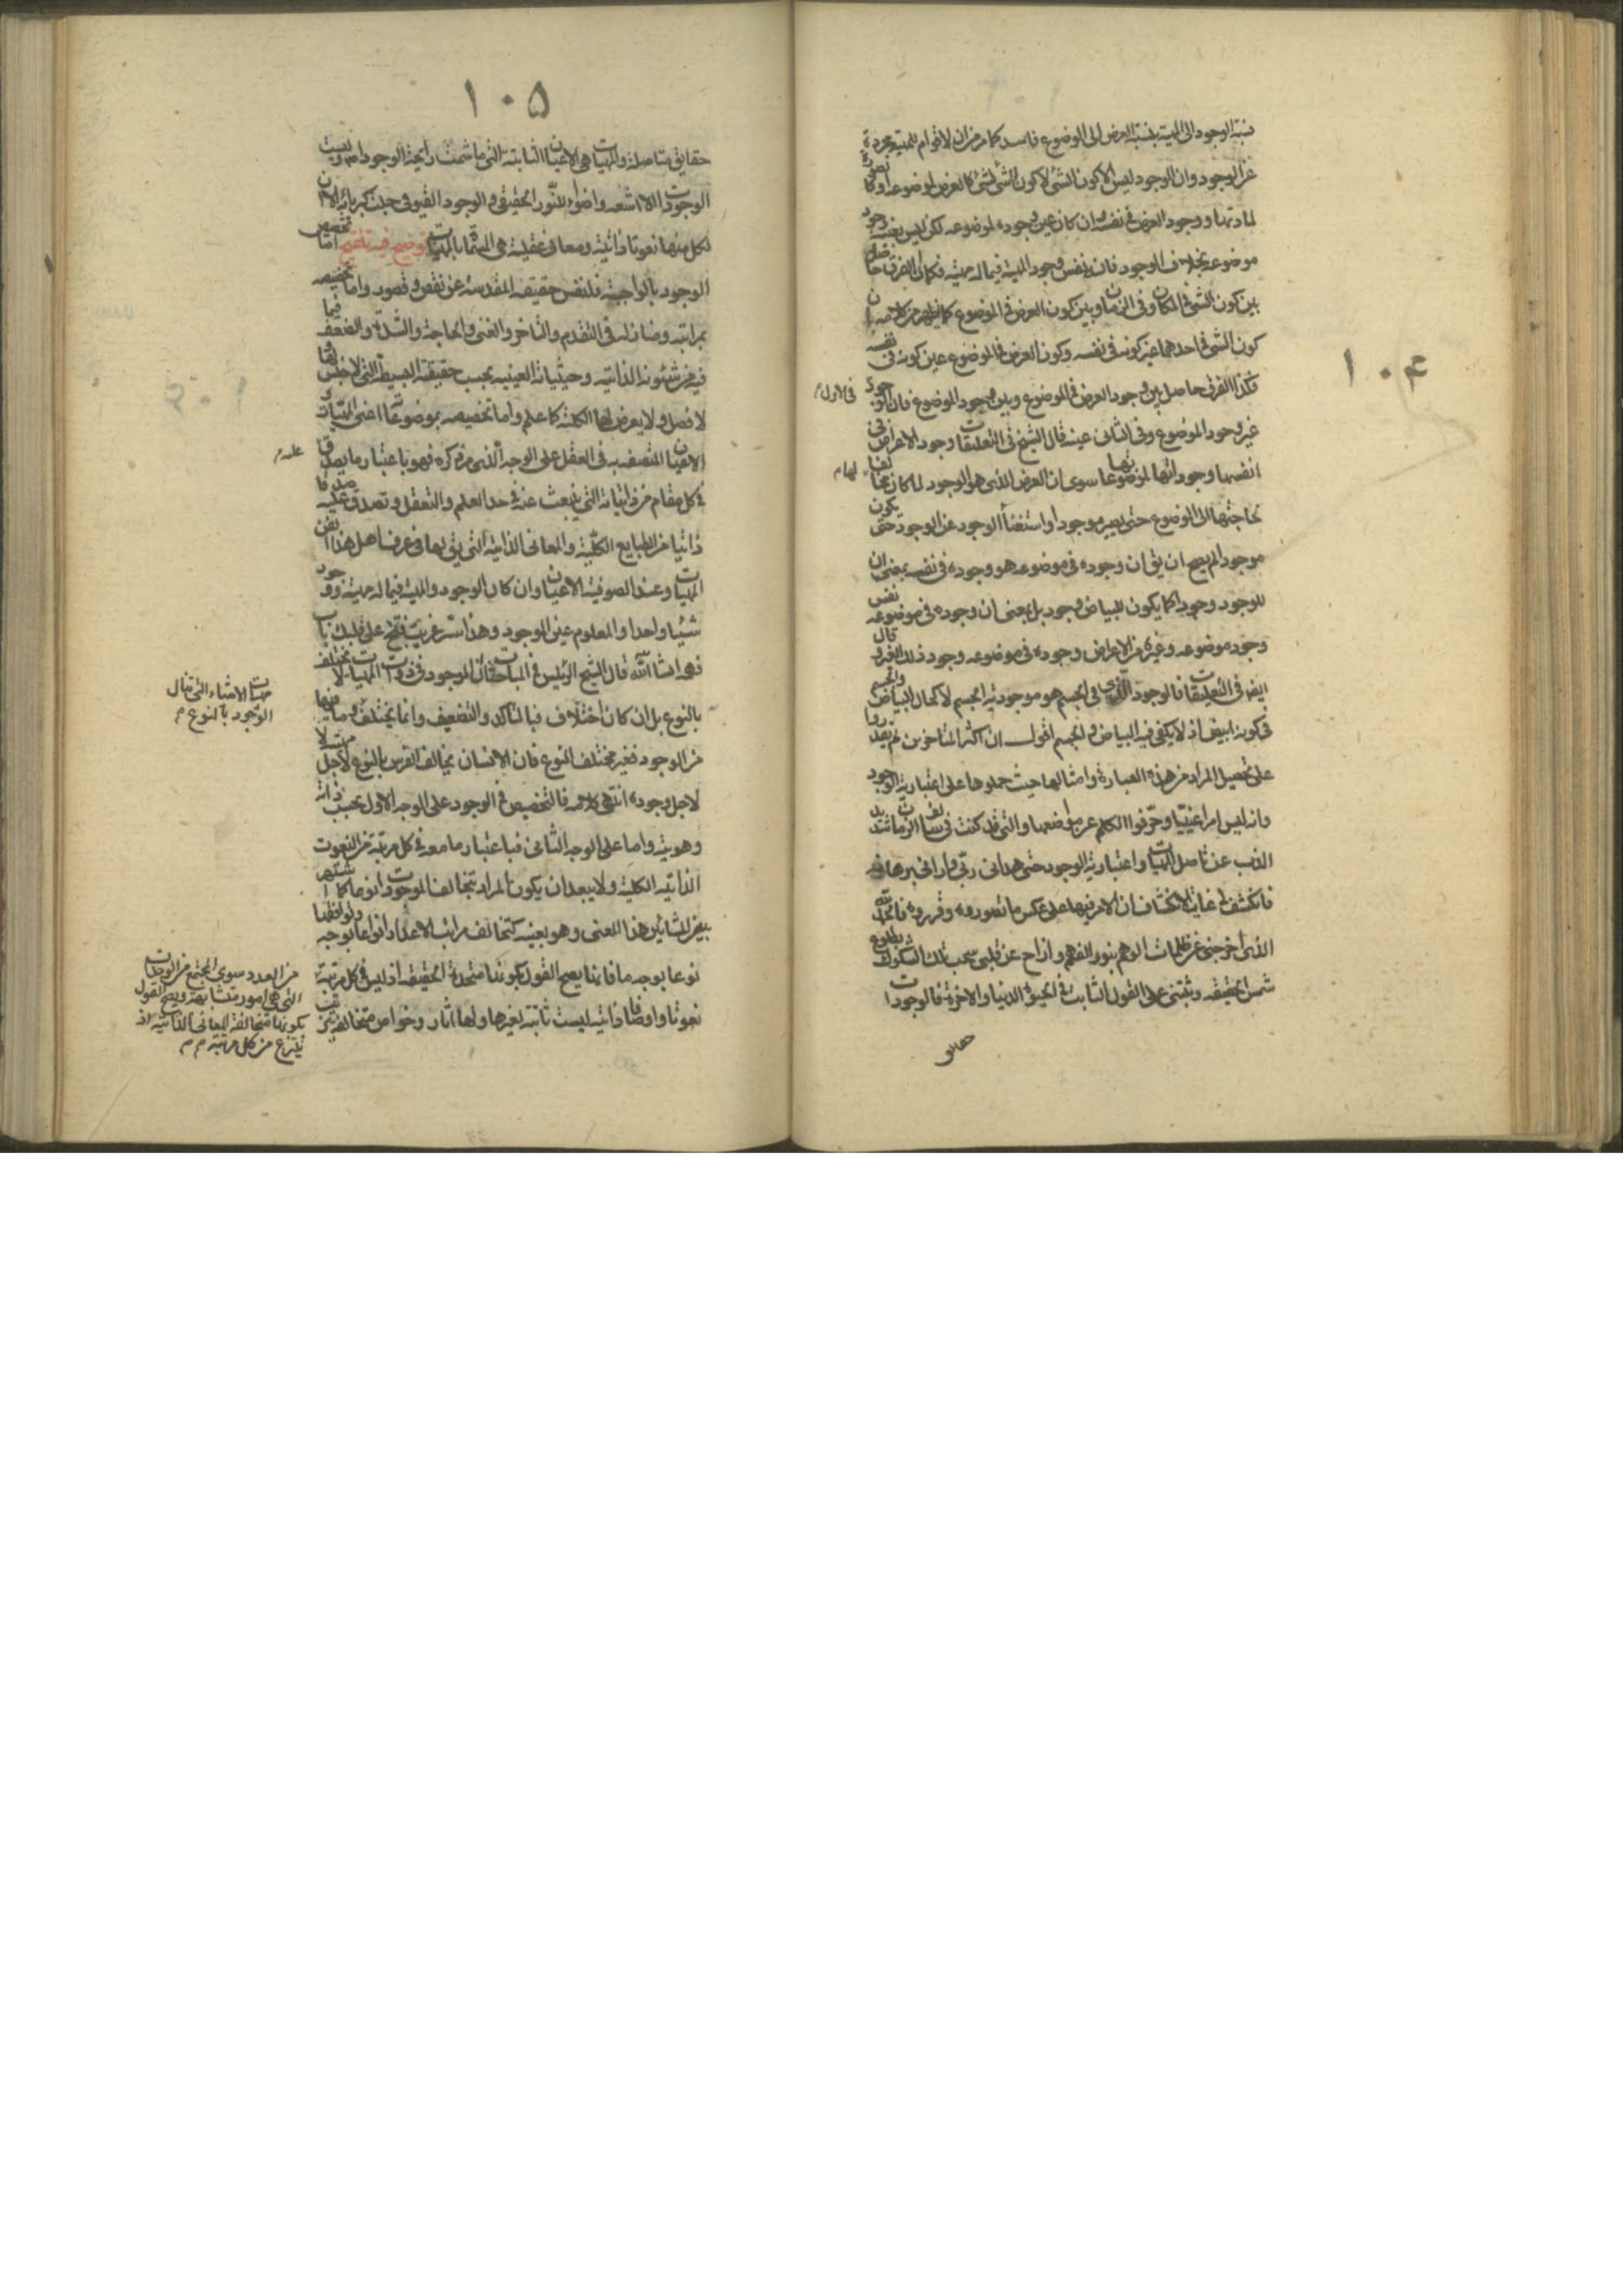 ١٠٤
نسبة الوجود الى المهية كنسبة العرض الى الموضوع فاسد كما مر من ان لا قوام للمهية مجردة
عن الوجود وان الوجود ليس الا كون الشئ لا كون الشئ لشئ كالعرض لموضوعه او كالصورة
لمادتها ووجود العرض فى نفسه وان كان عين وجوده لموضوعه لكن ليس بعينه وجود
موضوعه بخلاف الوجود فانه نفس وجود المهية فيما له مهية فكما ان الفرق حاصل
بين كون الشئ فى المكان وفى الزمان وبين كون العرض فى الموضوع كما يظهر من كلامه ان
كون الشئ فى احدهما غير كونه فى نفسه وكون العرض فى الموضوع عين كونه فى نفسه
فكذا الفرق حاصل بين وجود العرض فى الموضوع وبين وجود الموضوع فان الوجود
فى الاول
غير وجود الموضوع وفى الثانى عينه قال الشيخ فى التعليقات وجود الاعراض فى
انفسها وجوداتها لموضوعاتها سوى ان العرض الذى هو الوجود لما كان مخالفا
لها م
لحاجتها الى الموضوع حتى يصير موجودا واستغناء الوجود عن الوجود حتى يكون
موجودا لم يصح ان يق ان وجوده فى موضوعه هو وجوده فى نفسه بمعنى ان
للوجود وجودا كما يكون للبياض وجود بل بمعنى ان وجوده فى موضوعه نفس
وجود موضوعه وغيره من الاعراض وجوده فى موضوعه وجود ذلك الغير وقال
ايض فى التعليقات فالوجود الذى فى الجسم هو موجودية الجسم لا كحال البياض والجسم
فى كونه ابيض اذ لا يكفى فيه البياض والجسم اقول ان اكثر المتاخرين لم يقدروا
على تحصيل المراد من هذه العبارة وامثالها حيث حملوها على اعتبارية الوجود
وانه ليس امرا عينيا وحرفوا الكلم عن مواضعها وانى قد كنت فى سالف الزمان شديد
الذب عن تاصل المهيات واعتبارية الوجود حتى هدانى ربى وارانى برهانه
فانكشف لى غاية الانكشاف ان الامر فيها على عكس ما تصوروه وقرروه فالحمد لله
الذى اخرجنى عن ظلمات الوهم بنور الفهم وازاح عن قلبى سحب تلك الشكوك بطلوع
شمس الحقيقه وثبتنى على القول الثابت فى الحيوة الدنيا والاخرة فالوجودات
حقايق
١٠٥
حقايق متاصلة والمهيات هى الاعيان الثابتة التى ما شمت رايحة الوجود ابدا وليست
الوجودات الا اشعه واضواء للنور الحقيقى والوجود القيومى جلت كبريائه الا ان
لكل منها نعوتا ذاتية ومعانى عقلية هى المسماة بالمهيات توضيح فيه تنقيح اما تخصص
الوجود بالواجبية فلنفس حقيقته المقدسة عن نقص وقصور واما تخصيصه
بمراتبه ومنازله فى التقدم والتاخر والغنى والحاجة والشدة والضعف فبما
فيه من شئونه الذاتيه وحيثياته العينيه بحسب حقيقته البسيطة التى لا جنس لها و
لا فصل ولا يعرض لها الكلية كما علم واما تخصيصه بموضوعاته اعنى المهيات و
الاعيان المتصفه به فى العقل على الوجه الذى مر ذكره فهو باعتبار ما يصدق
عليه م
فى كل مقام من ذاتياته التى ينبعث عنه فى حد العلم والتعقل وتصدق عليه صدقا
ذاتيا من الطبايع الكلية والمعانى الذاتية التى يق لها فى عرف اهل هذا الفن
المهيات وعند الصوفية الاعيان وان كان الوجود والمهية فيما له مهية ووجود
شيئا واحدا والمعلوم عين الموجود وهذا سر غريب فتح على قلبك باب
فهمه انشا الله قال الشيخ الرئيس فى المباحثات ان الموجود فى ذوات المهيات لا يختلف
بالنوع بل ان كان اختلاف فبالتاكد والتضعيف وانما يختلف
مهيات الاشياء التى تنال
الوجود بالنوع م
وما فيها
من الوجود فغير مختلف النوع فان الانسان يخالف الفرس بالنوع لاجل مهيته لا
لاجل وجوده انتهى كلامه فالتخصيص فى الوجود على الوجه الاول بحسب ذاته
وهويته واما على الوجه الثانى فباعتبار ما معه فى كل مرتبة من النعوت
الذاتيه الكلية ولا يبعد ان يكون المراد بتخالف الموجودات نوعا كما اشتهر
بين المشائين هذا المعنى وهو بعينه كتخالف مراتب الاعداد انواعا بوجه وتوافقها
نوعا بوجه ما فانما يصح القول بكونها متحدة الحقيقه اذ ليس فى كل مرتبة
من العدد سوى المجتمع من الوحدات
التى هى امور متشابهة ويصح القول
بكونها متخالفة المعانى الذاتيه اذ
ينتزع من كل مرتبة م م
نعوتا واوصافا ذاتيه ليست ثابتة لغيرها ولها اثار وخواص متخالفة